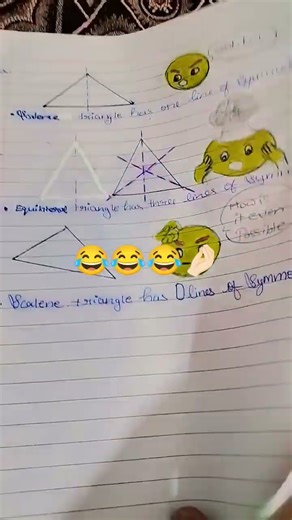 triangle has one line of Symmet
• Equilateral triangle has three lines of Symm
it even
possible
• Scalene triangle has 0 lines of Symme